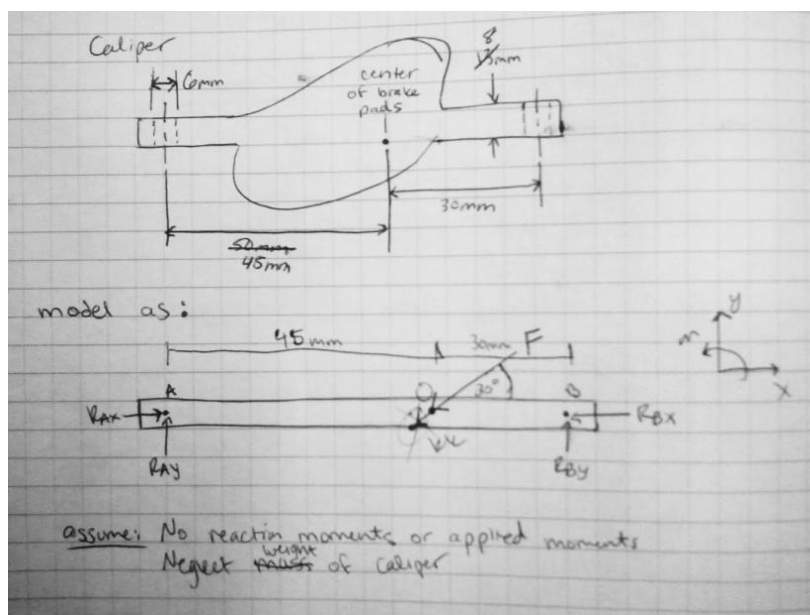 Caliper
8
13mm
6mm
center
of brake
pads
30mm
50mm
45mm
model as:
45mm
30mm
F
y
m
x
A
O
30°
B
RAX
RBX
RAY
RBY
assume: No reaction moments or applied moments
Neglect mass weight of caliper